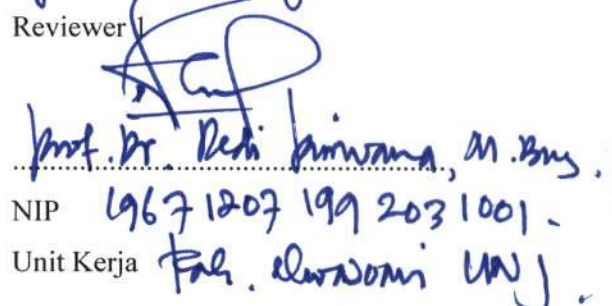 Reviewer 1
Prof. Dr. Dedi Purwana, M. Bus.
NIP 19671207 199203 1001.
Unit Kerja Fak. ekonomi UNJ.